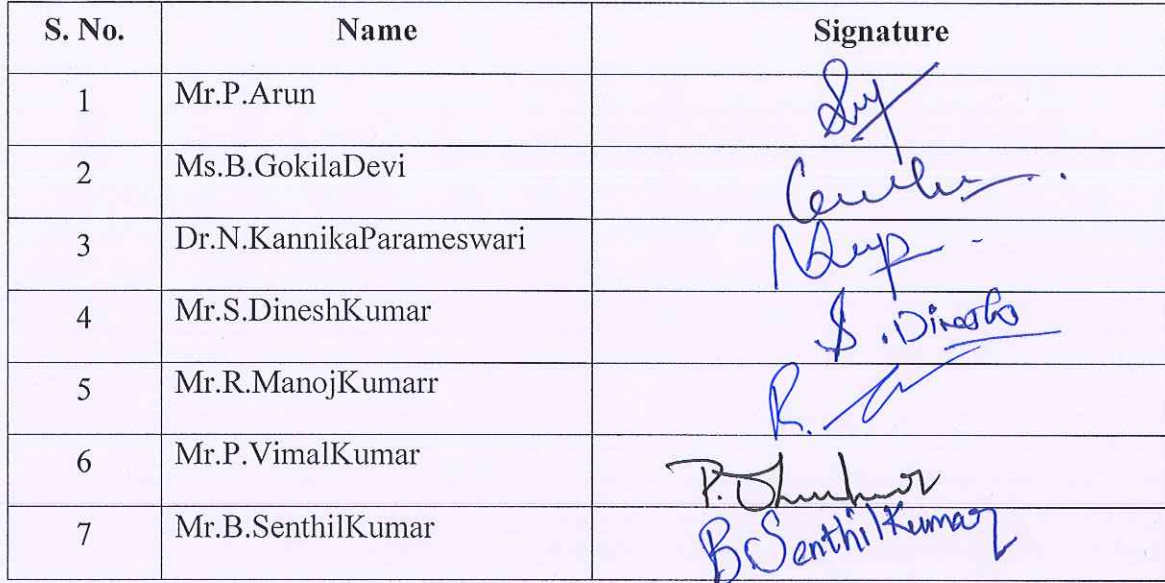 S. No. Name Signature
1 Mr.P.Arun
2 Ms.B.GokilaDevi
3 Dr.N.KannikaParameswari
4 Mr.S.DineshKumar S.Dinesh
5 Mr.R.ManojKumarr R.
6 Mr.P.VimalKumar P.
7 Mr.B.SenthilKumar B.SenthilKumar